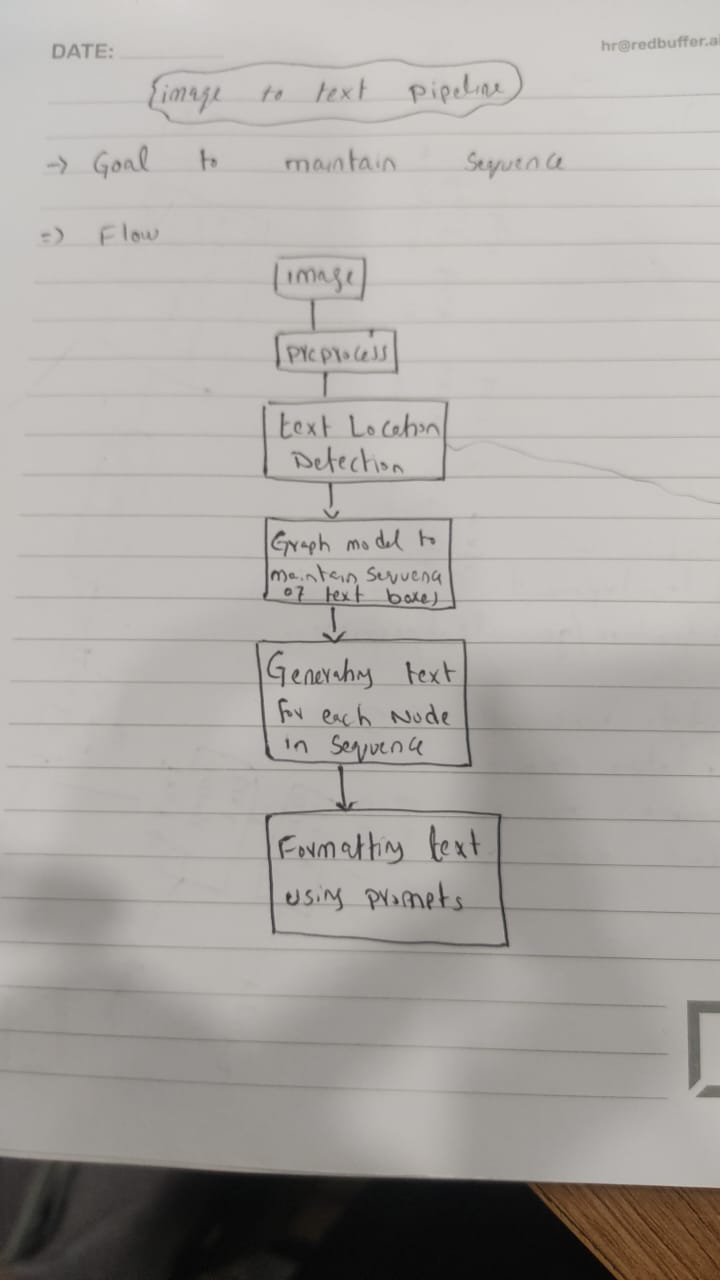 DATE:
hr@redbuffer.a
image to text pipeline
-> Goal to maintain Sequence
=> Flow
image
preprocess
text Location
Detection
Graph model to
maintain Sequence
of text boxes
Generating text
for each Node
in Sequence
Formatting text
using prompts